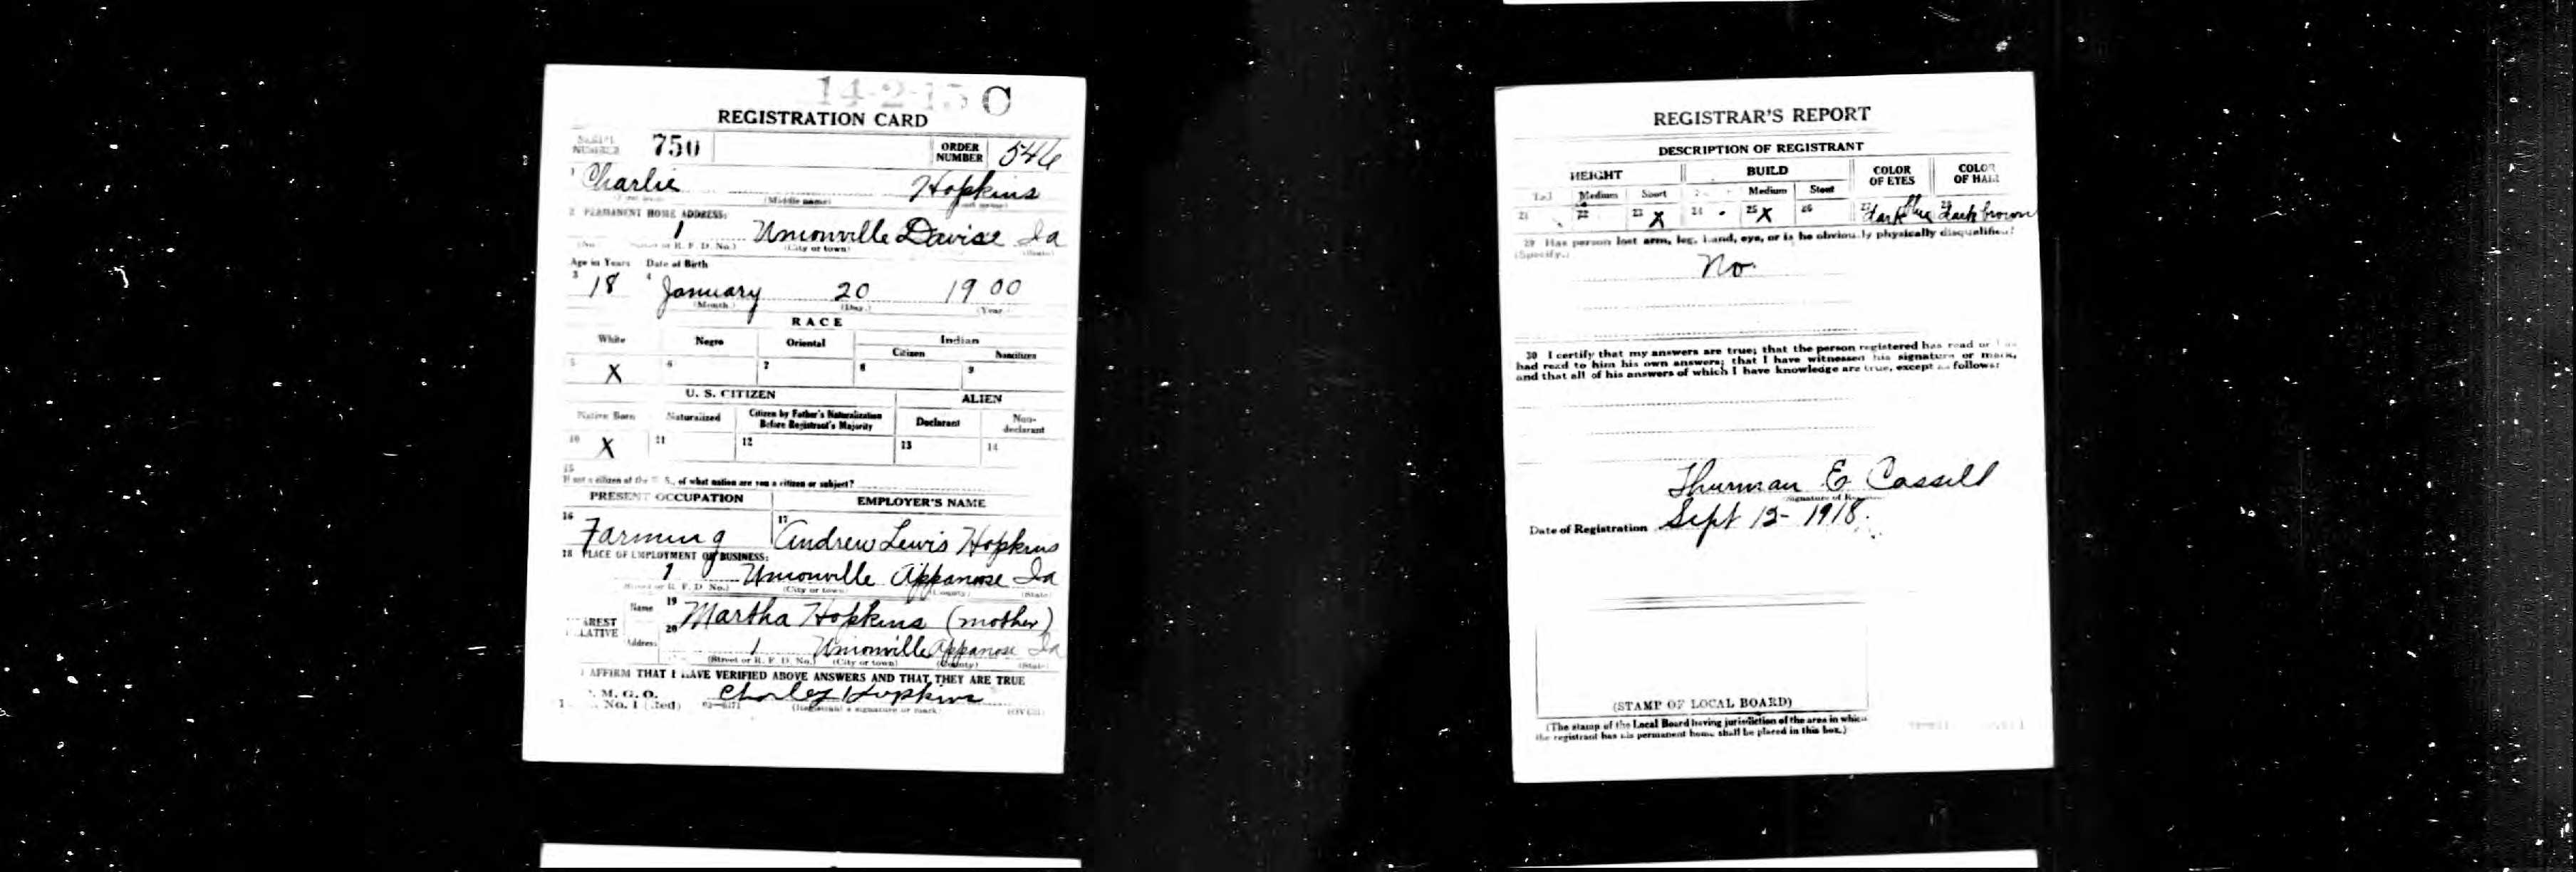 14-2-15 C
REGISTRATION CARD
SERIAL NUMBER 750 ORDER NUMBER 546
1 Charlie Hopkins
(Middle name)
2 PERMANENT HOME ADDRESS:
1 Unionville Davise Ia
R. F. D. No.) (City or town) (State)
Age in Years Date of Birth
3 18 4 January 20 1900
(Month.) (Day.) (Year.)
RACE
White Negro Oriental Indian
Citizen Noncitizen
5 X 6 7 8 9
U. S. CITIZEN ALIEN
Native Born Naturalized Citizen by Father's Naturalization Before Registrant's Majority Declarant Non-declarant
10 X 11 12 13 14
15
If not a citizen of the U. S., of what nation are you a citizen or subject?
PRESENT OCCUPATION EMPLOYER'S NAME
16 Farming 17 Andrew Lewis Hopkins
18 PLACE OF EMPLOYMENT OR BUSINESS:
1 Unionville Appanoose Ia
R. F. D. No.) (City or town) (County) (State)
Name 19 Martha Hopkins (mother)
AREST
LATIVE
Address 20 1 Unionville Appanose Ia
(Street or R. F. D. No.) (City or town) (County) (State)
I AFFIRM THAT I HAVE VERIFIED ABOVE ANSWERS AND THAT THEY ARE TRUE
P. M. G. O.
No. 1 (Red) 03-6171 Charley Hopkins
(Registrant's signature or mark) (OVER)
REGISTRAR'S REPORT
DESCRIPTION OF REGISTRANT
HEIGHT BUILD COLOR OF EYES COLOR OF HAIR
Tall Medium Short Medium Stout
21 22 23 X 24 25 X 26 27 dark blue 28 dark brown
29 Has person lost arm, leg, hand, eye, or is he obviously physically disqualified?
(Specify.)
No.
30 I certify that my answers are true; that the person registered has read or has
had read to him his own answers; that I have witnessed his signature or mark,
and that all of his answers of which I have knowledge are true, except as follows:
Thurman E Cassill
(Signature of Registrar)
Date of Registration Sept 12- 1918.
(STAMP OF LOCAL BOARD)
(The stamp of the Local Board having jurisdiction of the area in which
the registrant has his permanent home shall be placed in this box.)